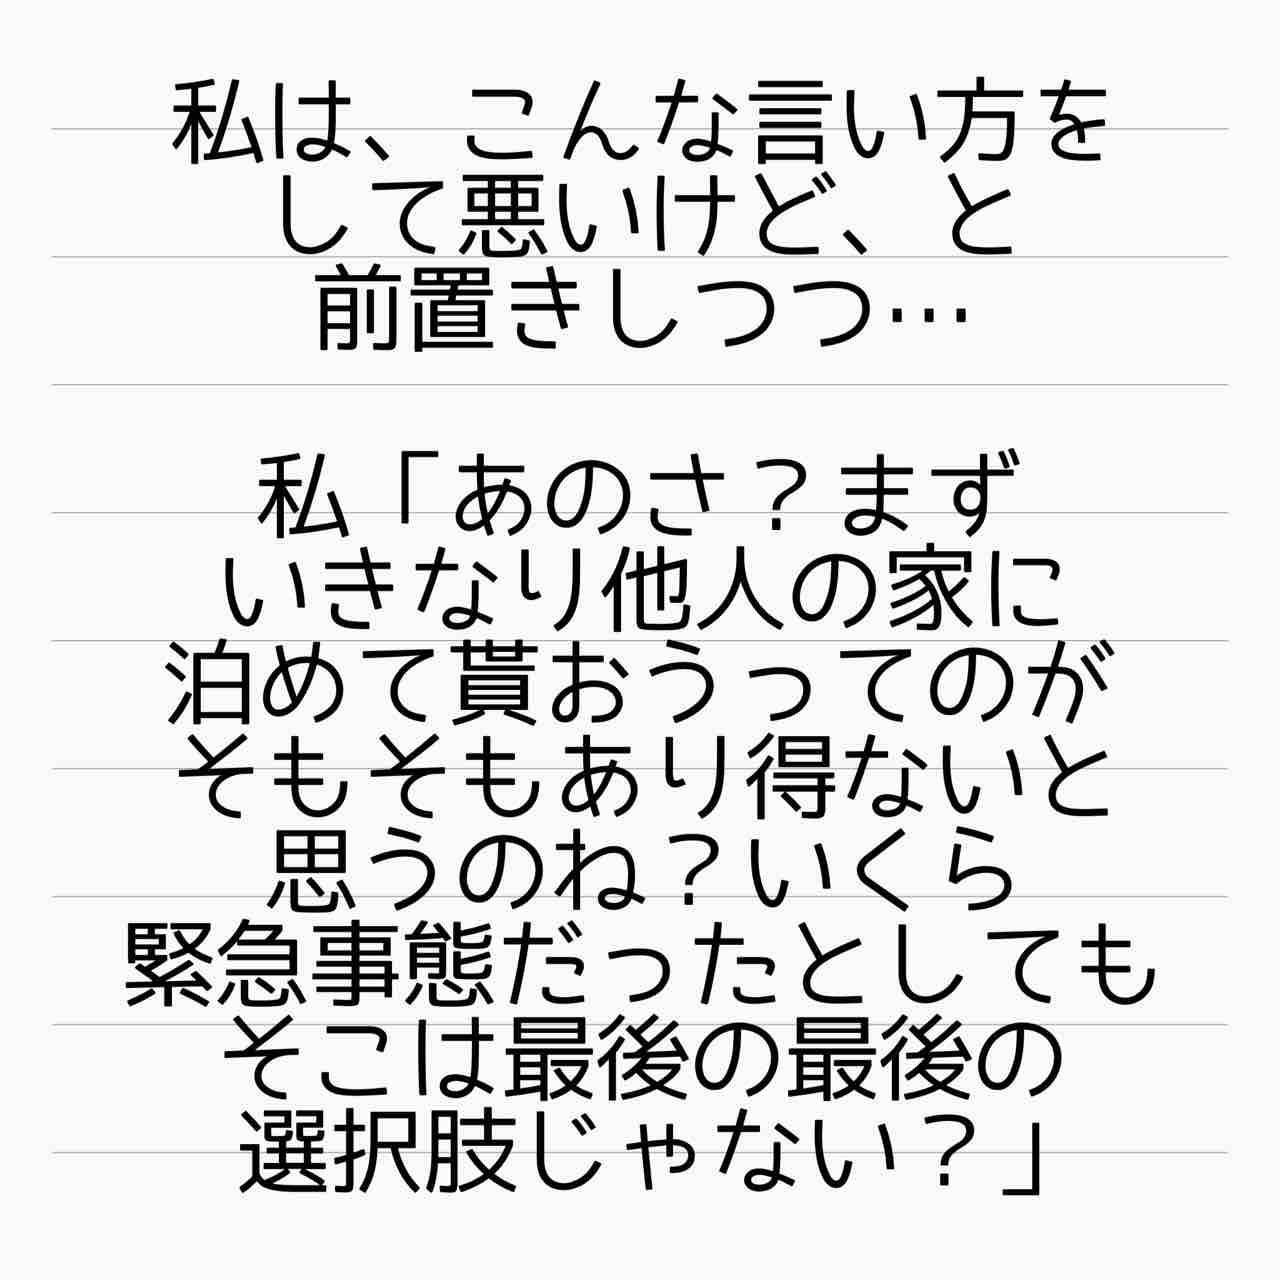 私は、こんな言い方を
して悪いけど、と
前置きしつつ…
私「あのさ？まず
いきなり他人の家に
泊めて貰おうってのが
そもそもあり得ないと
思うのね？いくら
緊急事態だったとしても
そこは最後の最後の
選択肢じゃない？」